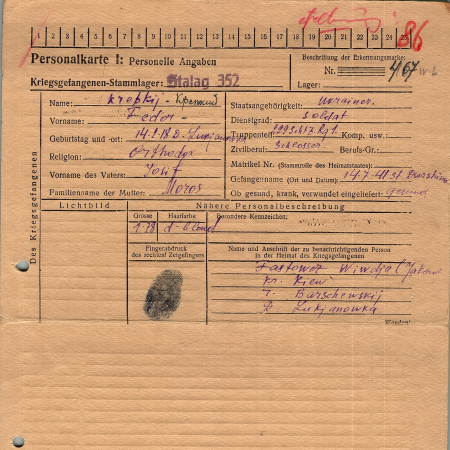 1 2 3 4 5 6 7 8 9 10 11 12 13 14 15 16 17 18 19 20 21 22 23 24 25
86
Personalkarte I: Personelle Angaben
Kriegsgefangenen-Stammlager: Stalag 352
Beschriftung der Erkennungsmarke
Nr. 467
Lager:
Des Kriegsgefangenen
Name: Krepkij - Крепкий
Vorname: Fedor
Geburtstag und -ort: 14.1.18 D. Lukjanowka
Religion: Orthodox
Vorname des Vaters: Josif
Familienname der Mutter: Moros
Staatsangehörigkeit: Ukrainer.
Dienstgrad: Soldat
Truppenteil: Komp. usw.:
Zivilberuf: Schlosser Berufs-Gr.:
Matrikel Nr. (Stammrolle des Heimatstaates):
Gefangennahme (Ort und Datum): 14.7.41
Ob gesund, krank, verwundet eingeliefert: gesund
Lichtbild
Nähere Personalbeschreibung
Grösse
1-78
Haarfarbe
Besondere Kennzeichen:
Fingerabdruck
des rechten Zeigefingers
Name und Anschrift der zu benachrichtigenden Person
in der Heimat des Kriegsgefangenen
Kr. Kiew
Barschewskij
D. Lukjanowka
Wenden!